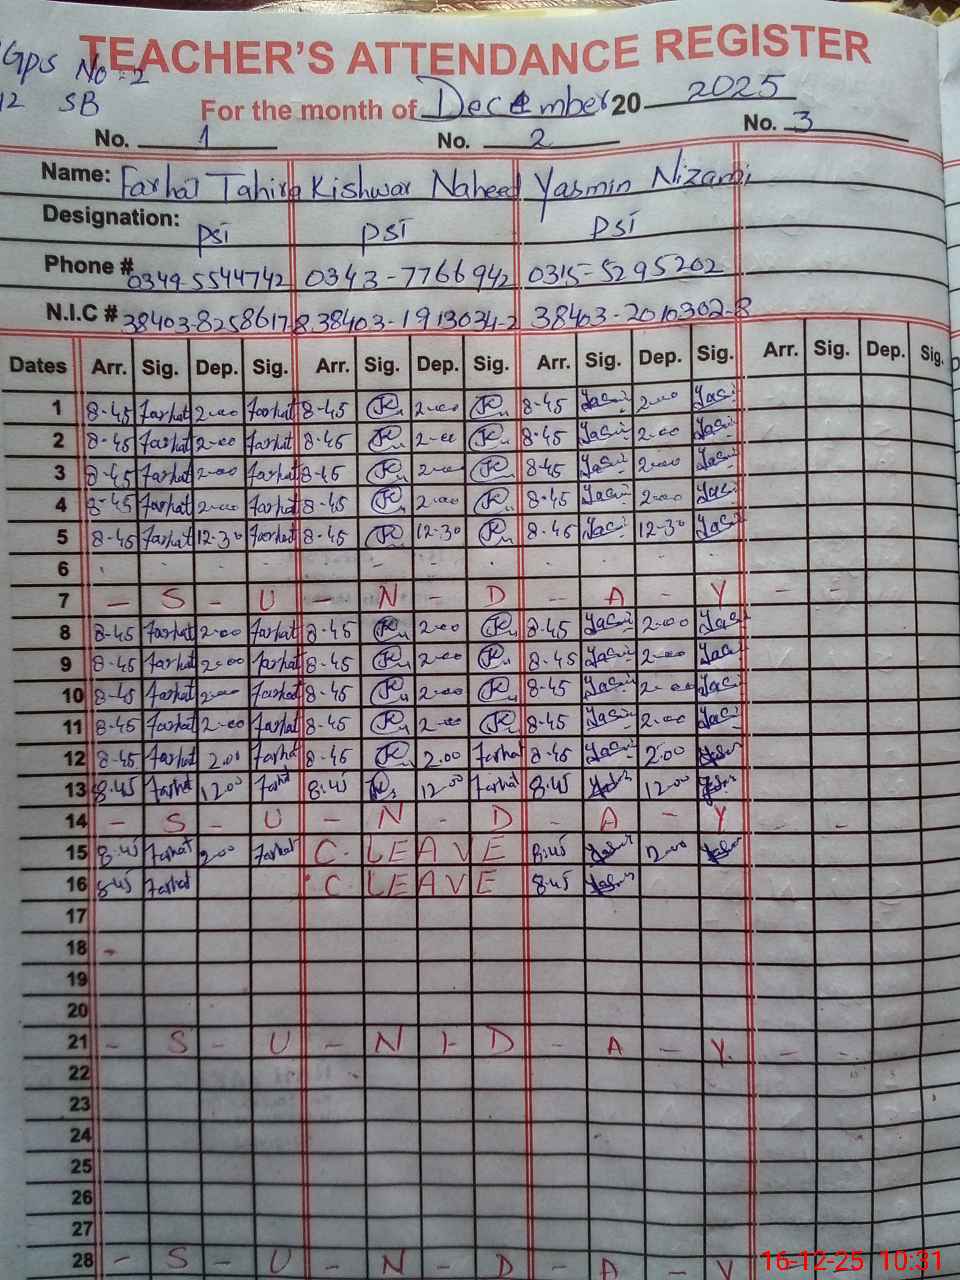 TEACHER'S ATTENDANCE REGISTER
Gps No: 2
12 SB
For the month of December 20 2025
No. 1 No. 2 No. 3
Name: Farhat Tahira Kishwar Naheed Yasmin Nizami
Designation: PST PST PST
Phone # 0349 5544742 0343-7766942 0315-5295202
N.I.C # 38403-8258617-8 38403-1913034-2 38403-2010302-8
Dates Arr. Sig. Dep. Sig. Arr. Sig. Dep. Sig. Arr. Sig. Dep. Sig. Arr. Sig. Dep. Sig.
1 8-45 Farhat 2-00 Farhat 8-45 2-00 8-45 2-00
2 8-45 Farhat 2-00 Farhat 8-45 2-00 8-45 2-00
3 8-45 Farhat 2-00 Farhat 8-45 2-00 8-45 2-00
4 8-45 Farhat 2-00 Farhat 8-45 2-00 8-45 2-00
5 8-45 Farhat 12-30 Farhat 8-45 12-30 8-45 12-30
6
7 - S - U - N - D - A - Y - -
8 8-45 Farhat 2-00 Farhat 8-45 2-00 8-45 2-00
9 8-45 Farhat 2-00 Farhat 8-45 2-00 8-45 2-00
10 8-45 Farhat 2-00 Farhat 8-45 2-00 8-45 2-00
11 8-45 Farhat 2-00 Farhat 8-45 2-00 8-45 2-00
12 8-45 Farhat 2.00 Farhat 8-45 2.00 Farhat 8-45 2.00
13 8.45 Farhat 12.00 Farhat 8.45 12.00 Farhat 8.45 12.00
14 - S - U - N - D - A - Y - -
15 8.45 Farhat 2.00 Farhat C. LEAVE 8.45 2.00
16 8.45 Farhat C. LEAVE 8.45
17
18 -
19
20
21 - S - U - N - D - A - Y. - -
22
23
24
25
26
27
28 - S - U - N - D - A - Y
16-12-25 10:31